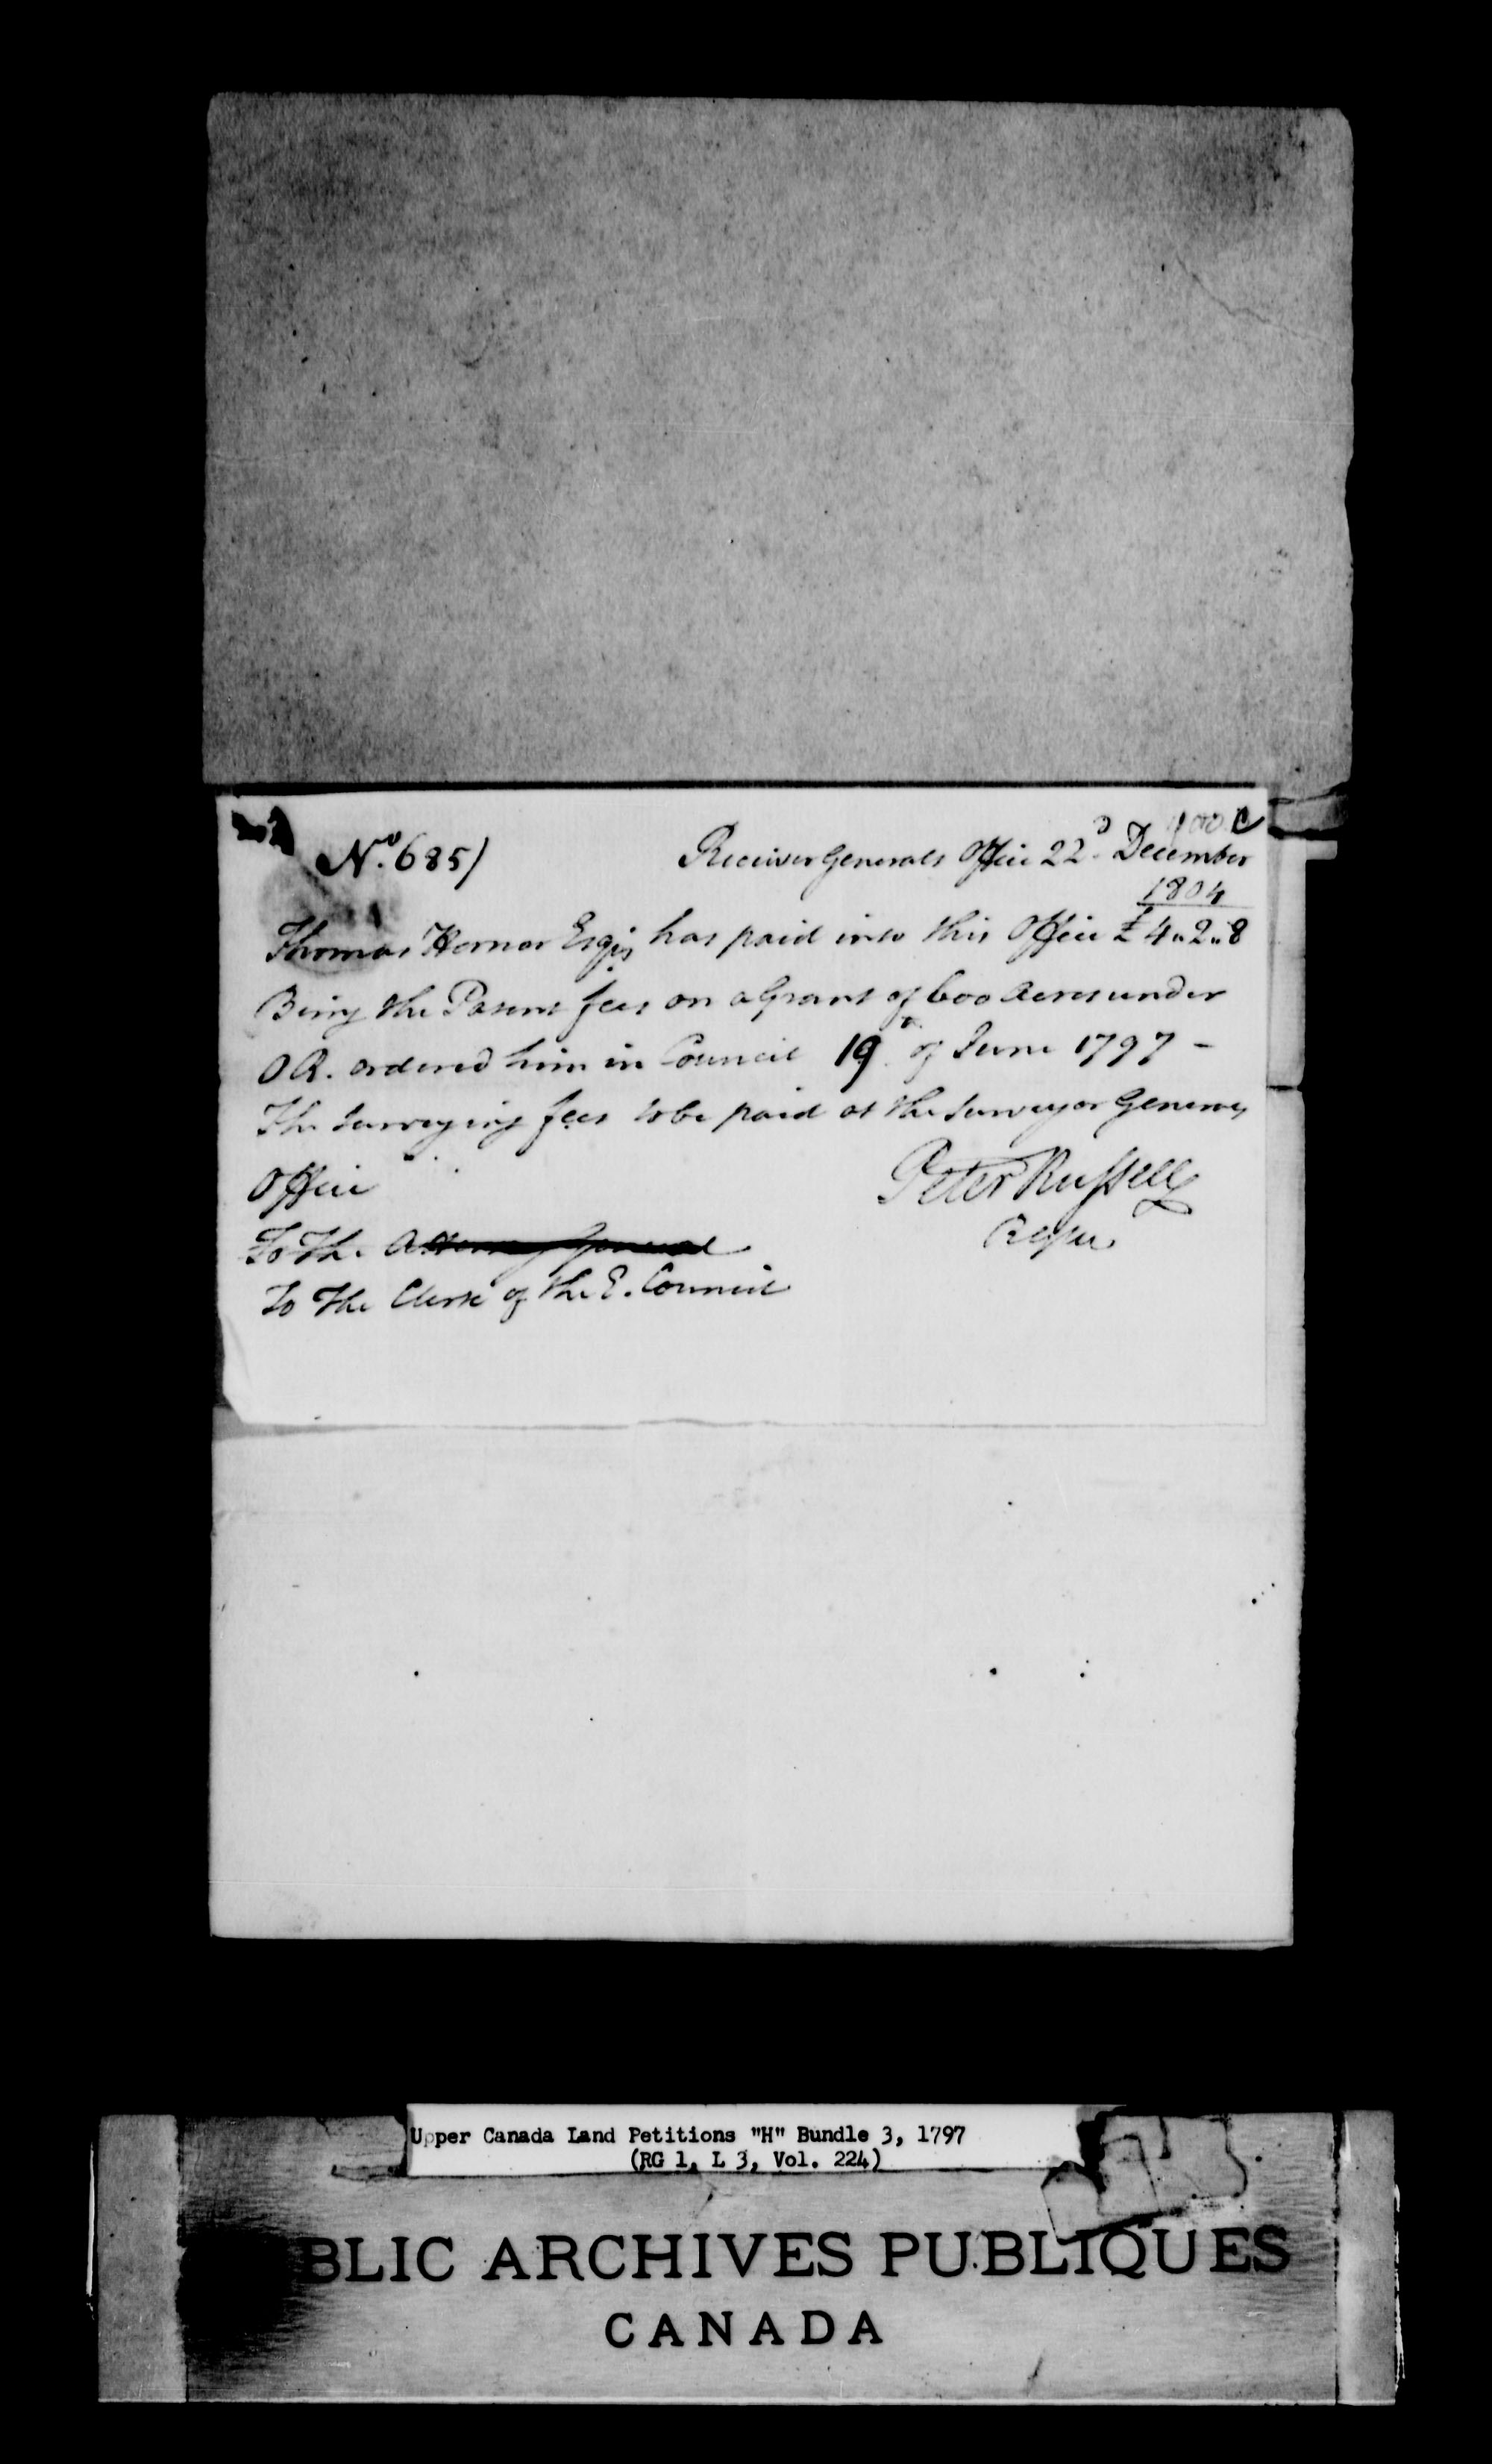 100 C
No. 685)
Receiver Generals Office 22d. December
1804
Thomas Hornor Esqr. has paid into this Office £ 4.. 2.. 8
Being the Patent fees on a Grant of 600 Acres under
O R. ordered him in Council 19th of June 1797 -
The Surveying fees to be paid at the Surveyor Generals
Office
Peter Russell
To The Attorney General
To The Clerk of the E. Council
Upper Canada Land Petitions "H" Bundle 3, 1797
(RG 1, L 3, Vol. 224)
BLIC ARCHIVES PUBLIQUES
CANADA